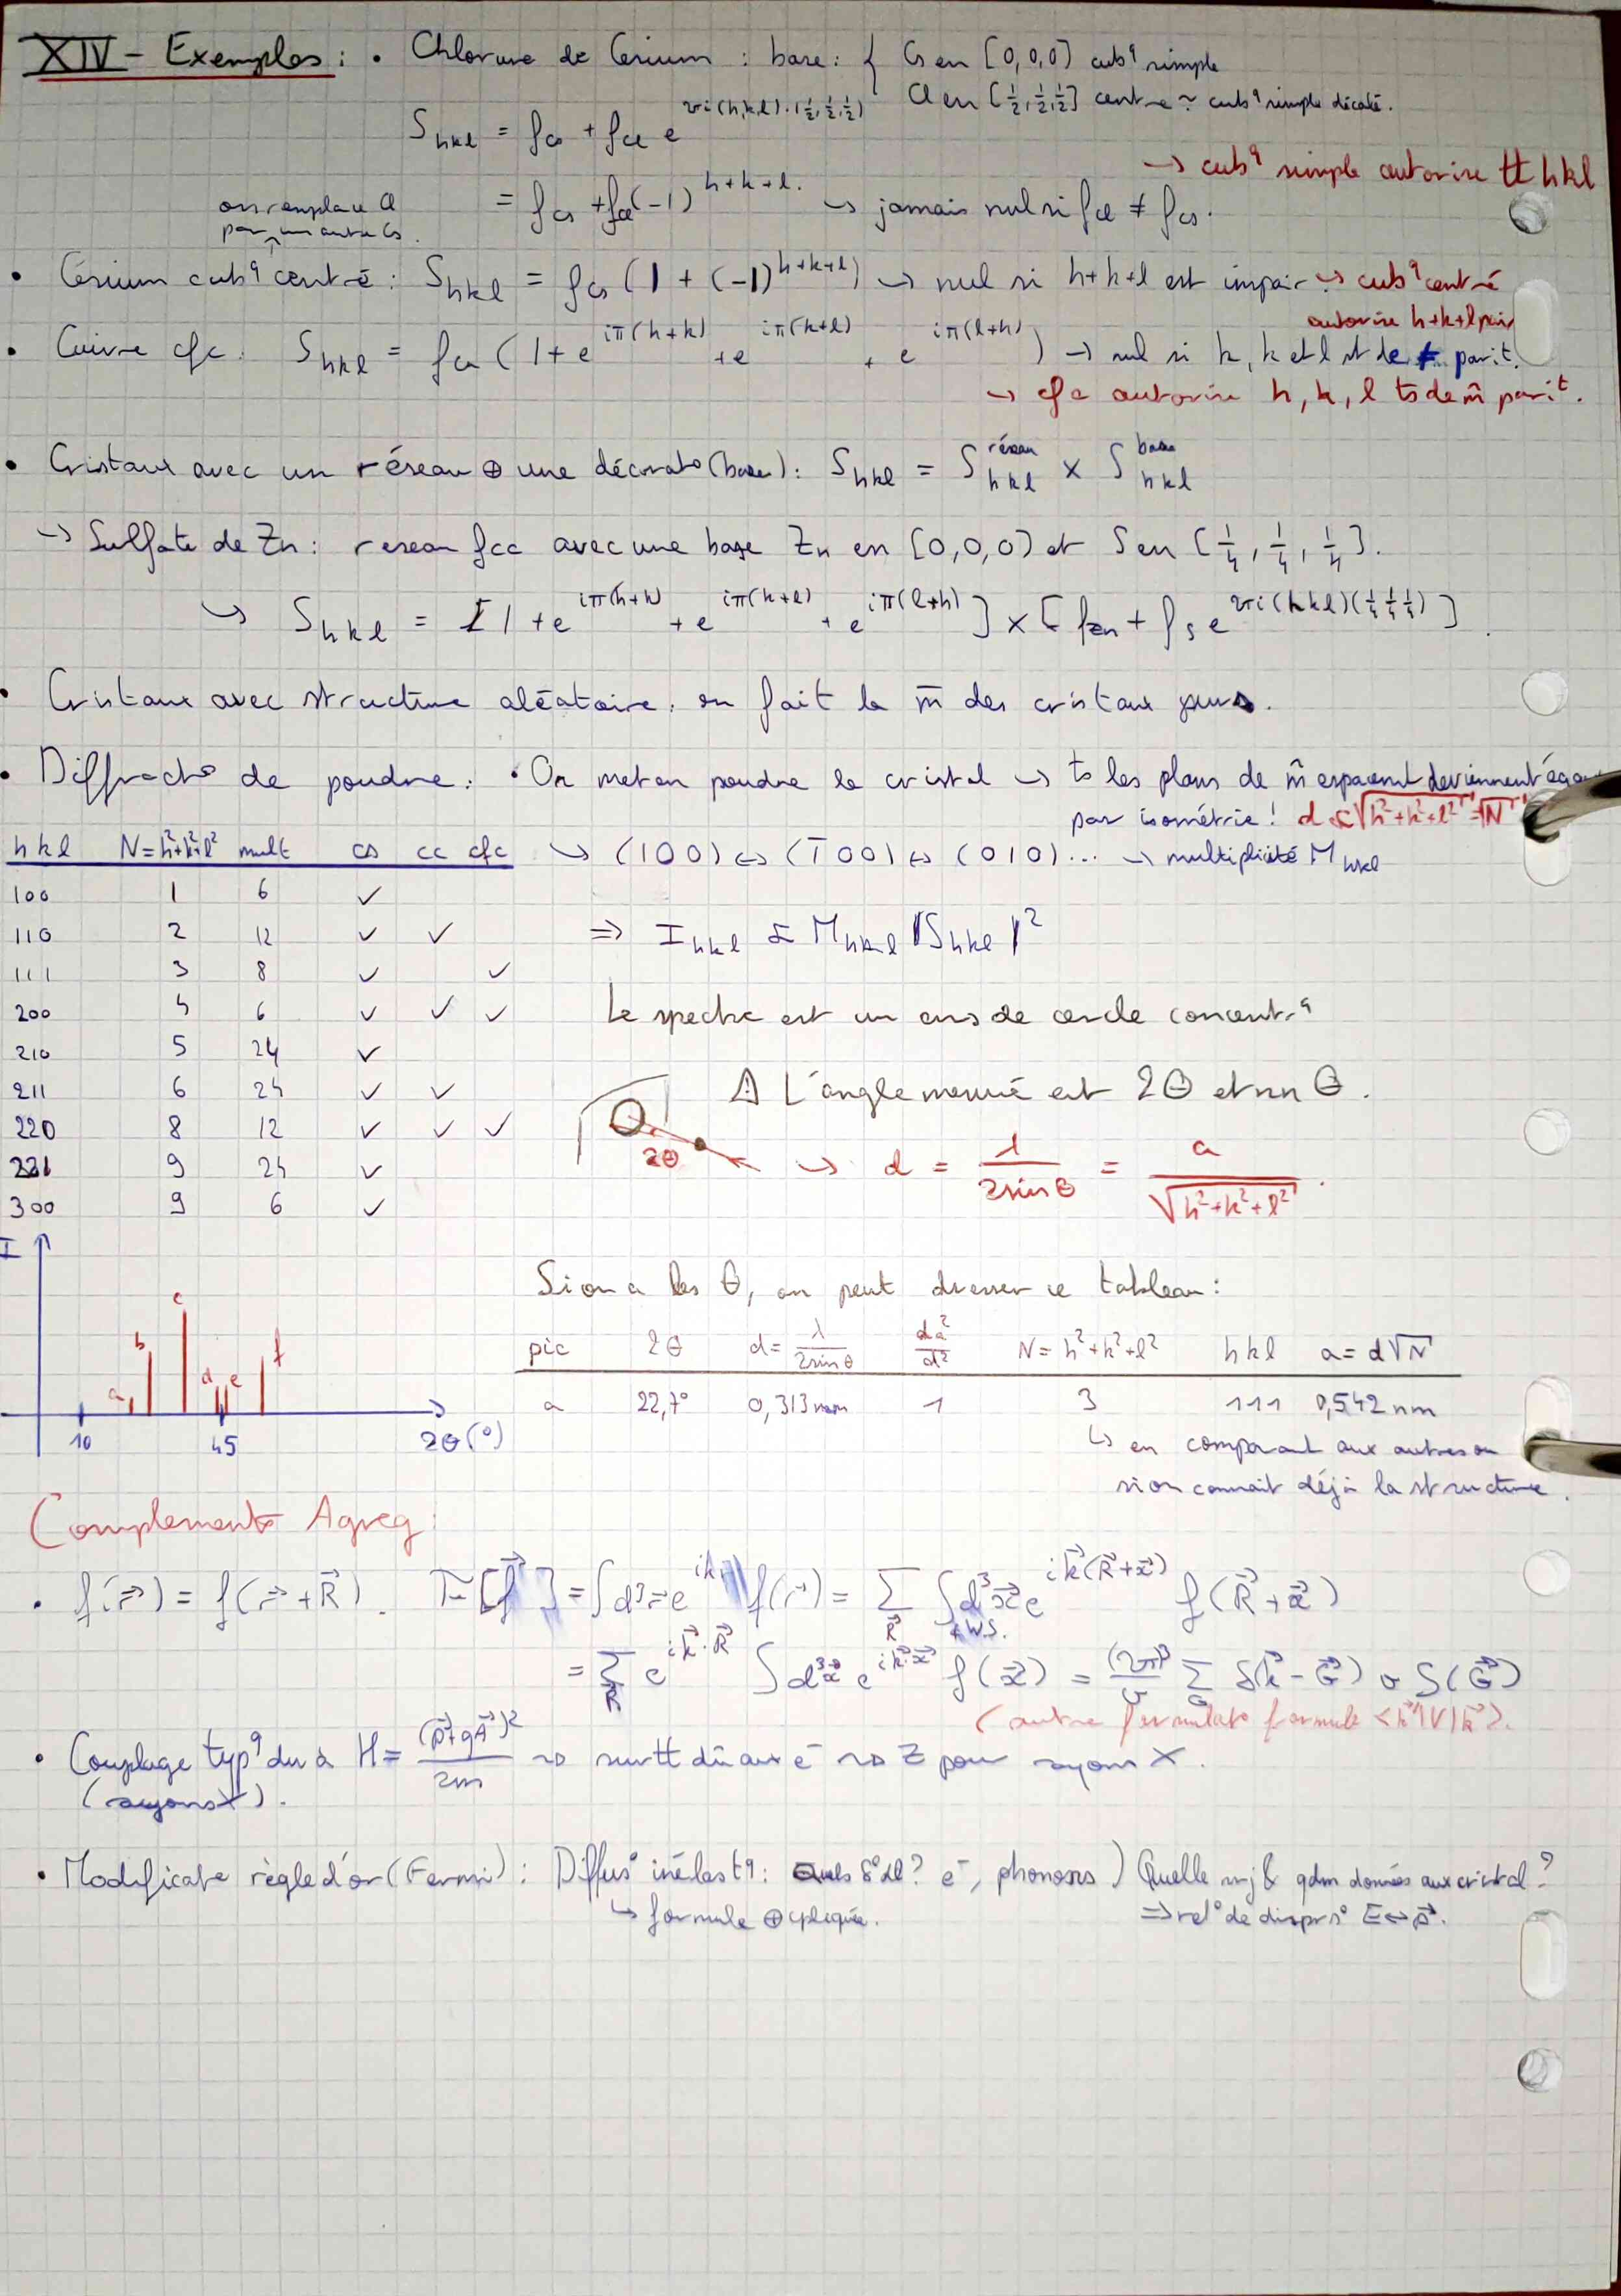 XIV - Exemples : • Chlorure de Cesium : base : { Cs en [0,0,0] cub^q simple
Cl en [1/2, 1/2, 1/2] centre ~ cub^q simple décalé.
S_hkl = f_Cs + f_Cl e^{2πi(h,k,l)·(1/2,1/2,1/2)}
→ cub^q simple autorise tt hkl
= f_Cs + f_Cl (-1)^{h+k+l}. → jamais nul si f_Cl ≠ f_Cs.
on remplace Cl
par un autre Cs.
• Césium cub^q centré : S_hkl = f_Cs (1 + (-1)^{h+k+l}) → nul si h+k+l est impair → cub^q centré
autorise h+k+l pair
• Cuivre cfc : S_hkl = f_Cu (1 + e^{iπ(h+k)} + e^{iπ(k+l)} + e^{iπ(l+h)}) → nul si h, k et l st de ≠ parit.
→ cfc autorise h, k, l ts de m̂ parit.
• Cristaux avec un réseau ⊕ une décorat° (base) : S_hkl = S_hkl^{réseau} × S_hkl^{base}
→ Sulfate de Zn : reseau fcc avec une base Zn en [0,0,0] et S en [1/4, 1/4, 1/4].
↳ S_hkl = [1 + e^{iπ(h+k)} + e^{iπ(k+l)} + e^{iπ(l+h)}] × [f_Zn + f_S e^{2πi(hkl)(1/4 1/4 1/4)}].
• Cristaux avec structure aléatoire : on fait la m̄ des cristaux purs.
• Diffract° de poudre : • On met en poudre le cristal → ts les plans de m̂ espacement deviennent
par isométrie ! d ∝ √(h²+k²+l²) = √N
hkl N=h²+k²+l² mult cs cc cfc ↳ (100) ↔ (1̄00) ↔ (010) ... → multiplicité M_hkl
100 1 6 ✓
110 2 12 ✓ ✓ ⇒ I_hkl ∝ M_hkl |S_hkl|²
111 3 8 ✓ ✓
200 4 6 ✓ ✓ ✓ Le spectre est un ens de cercle concent^q
210 5 24 ✓
211 6 24 ✓ ✓ ⚠ L'angle mesuré est 2θ et nn θ.
220 8 12 ✓ ✓ ✓
2θ → d = λ/(2sinθ) = a/√(h²+k²+l²).
221 9 24 ✓
300 9 6 ✓
I
Si on a les θ, on peut dresser ce tableau :
a b c d e f
pic 2θ d = λ/(2sinθ) d_a²/d² N = h²+k²+l² hkl a = d√N
a 22,7° 0,313nm 1 3 111 0,542nm
10 45 2θ(°)
↳ en comparant aux autres ou
si on connait déjà la structure.
Complements Agreg :
• f(r⃗) = f(r⃗+R⃗). TF[f] = ∫d³r⃗ e^{ik} f(r) = Σ_R⃗ ∫_{W.S.} d³x⃗ e^{ik⃗(R⃗+x⃗)} f(R⃗+x⃗)
= Σ_R⃗ e^{ik⃗·R⃗} ∫d³x⃗ e^{ik⃗·x⃗} f(x⃗) = (2π)³/v Σ_G δ(k⃗-G⃗) v S(G⃗)
(autre formulat° formule <k⃗'|V|k⃗>.
• Couplage typ^q du à H = (p⃗+qA⃗)²/2m ⇝ surtt dû aux e⁻ ⇝ Z pour rayons X.
(rayons X).
• Modificat° règle d'or (Fermi) : Diffus° inélast^q : Quels d° dl ? e⁻, phonons) Quelle nrj & qdm données aux cristal ?
↳ formule ⊕ cpliquée. ⇒ rel° de dispers° E↔p⃗.